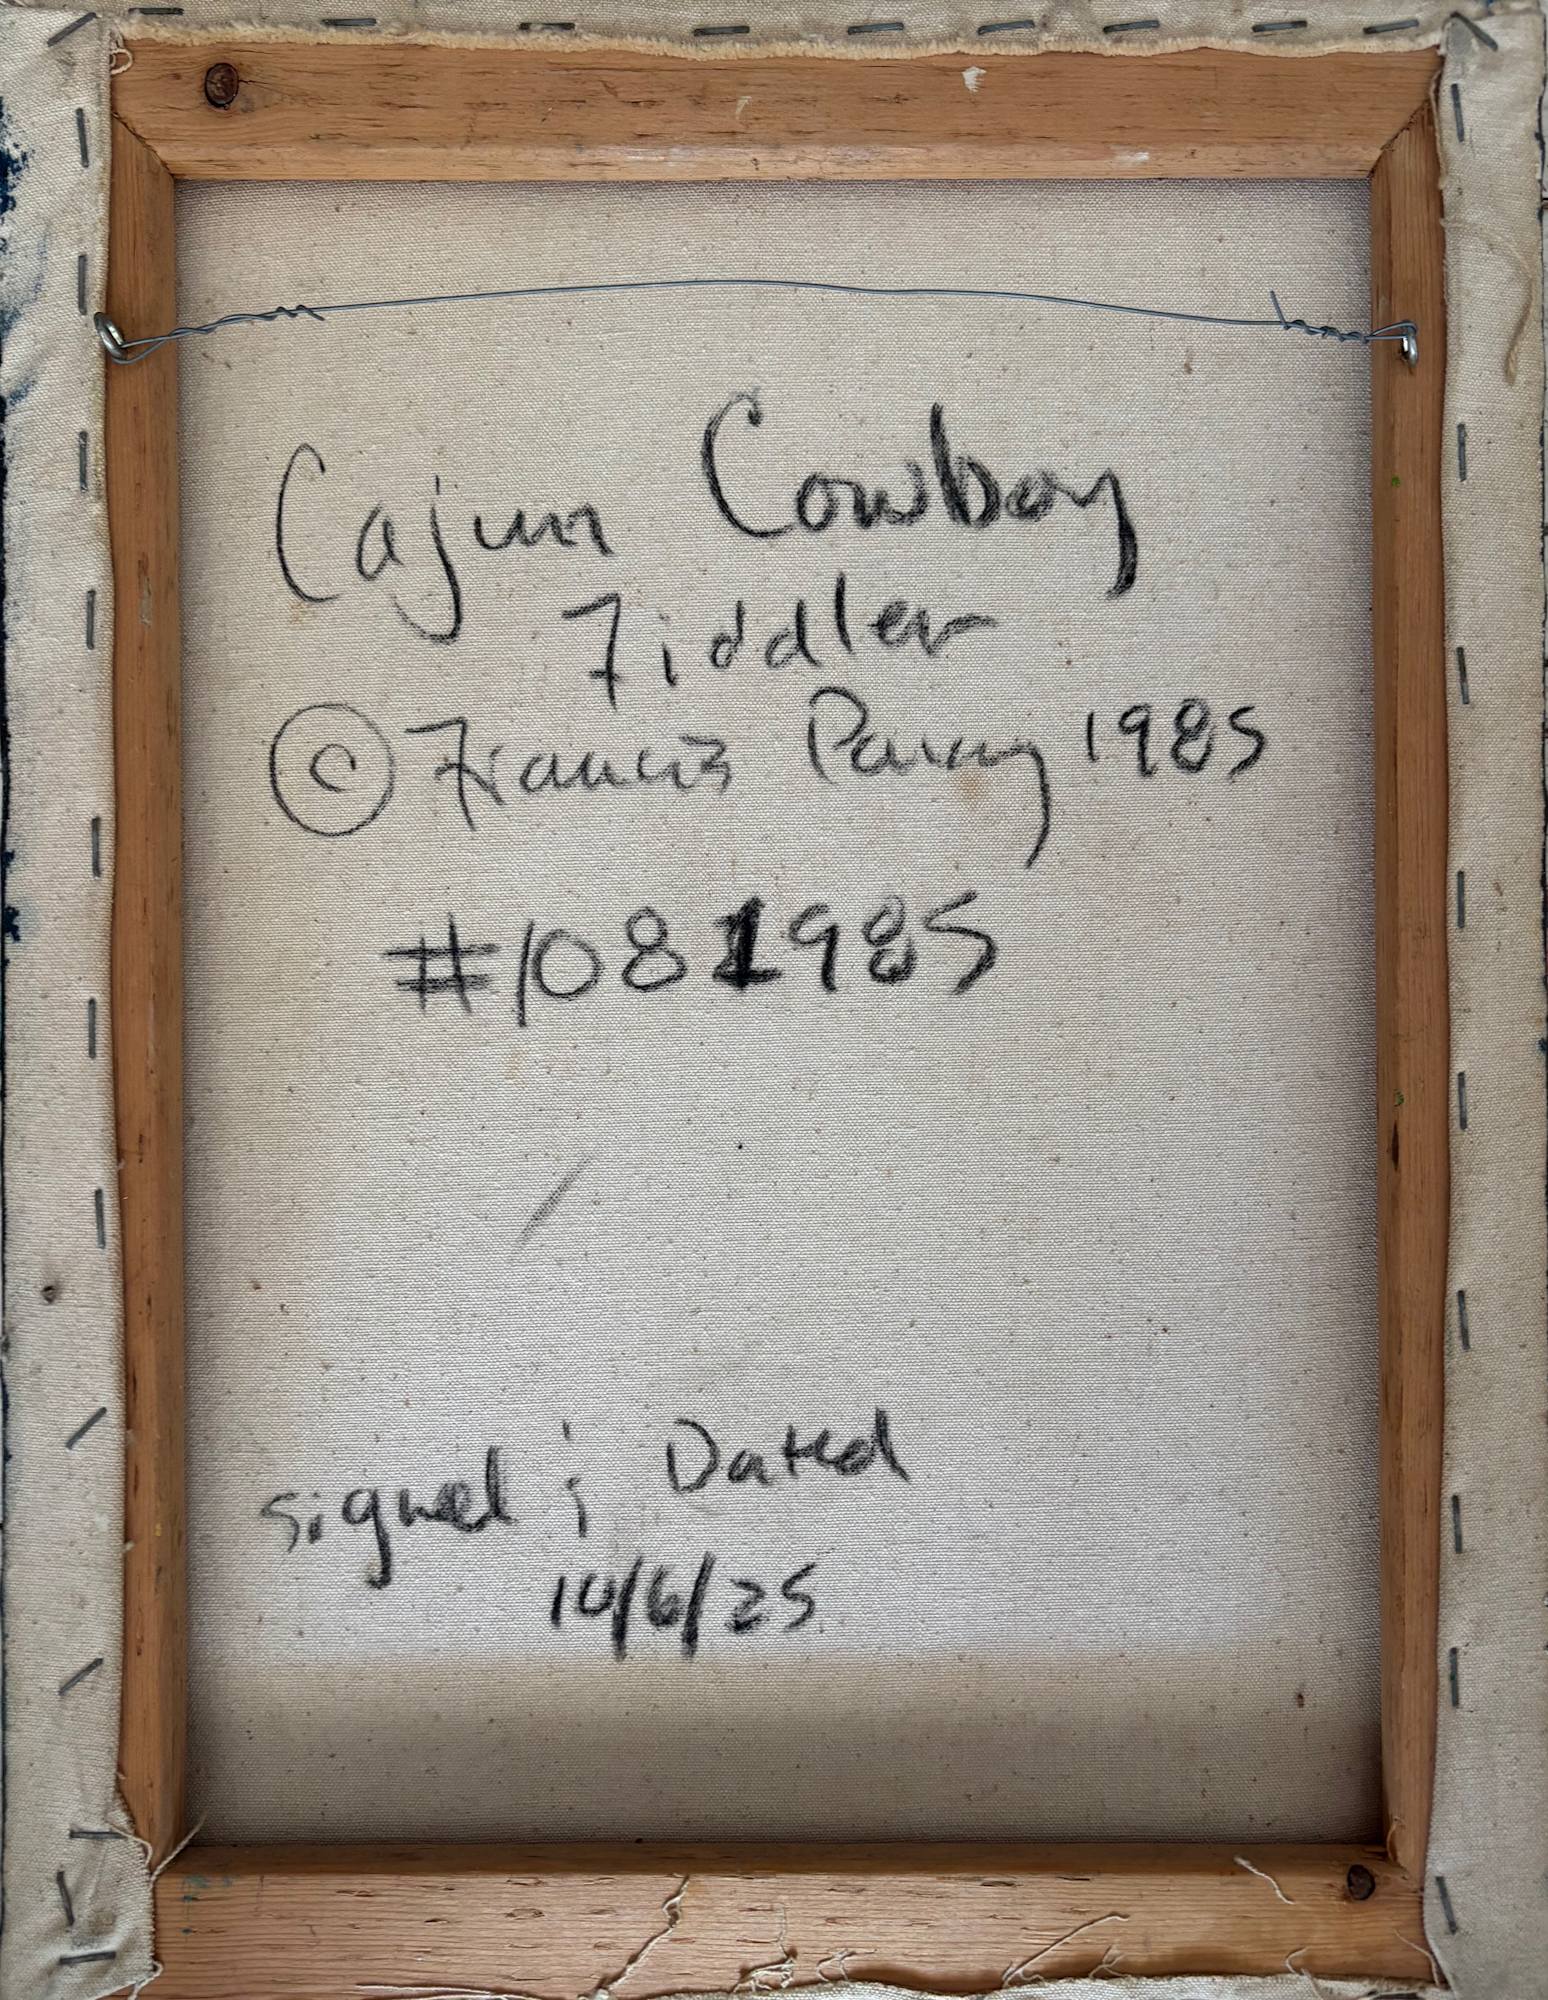 Cajun Cowboy
Fiddler
© Francis Pavy 1985
#1081985
signed & Dated
10/6/25